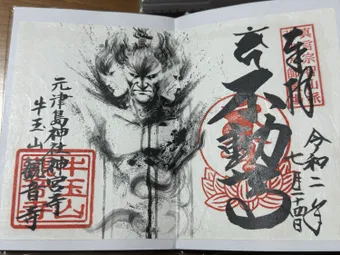 奉拝
令和二年
七月二十四日
不動
元津島神社神宮寺
牛玉山 観音寺
牛玉山